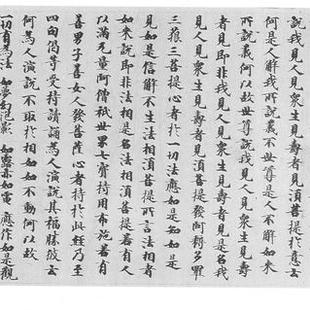 説我見人見衆生見壽者見須菩提於意云
何是人解我所說義不世尊是人不解如來
所說義何以故世尊說我見人見衆生見壽
者見即非我見人見衆生見壽者見是名我
見人見衆生見壽者見須菩提發阿耨多羅
三藐三菩提心者於一切法應如是知如是
見如是信解不生法相須菩提所言法相者
如來說即非法相是名法相須菩提若有人
以滿无量阿僧祇世界七寶持用布施若有
善男子善女人發菩薩心者持於此經乃至
四句偈等受持讀誦為人演說其福勝彼云
何為人演說不取於相如如不動何以故
一切有為法 如夢幻泡影 如露亦如電 應作如是觀